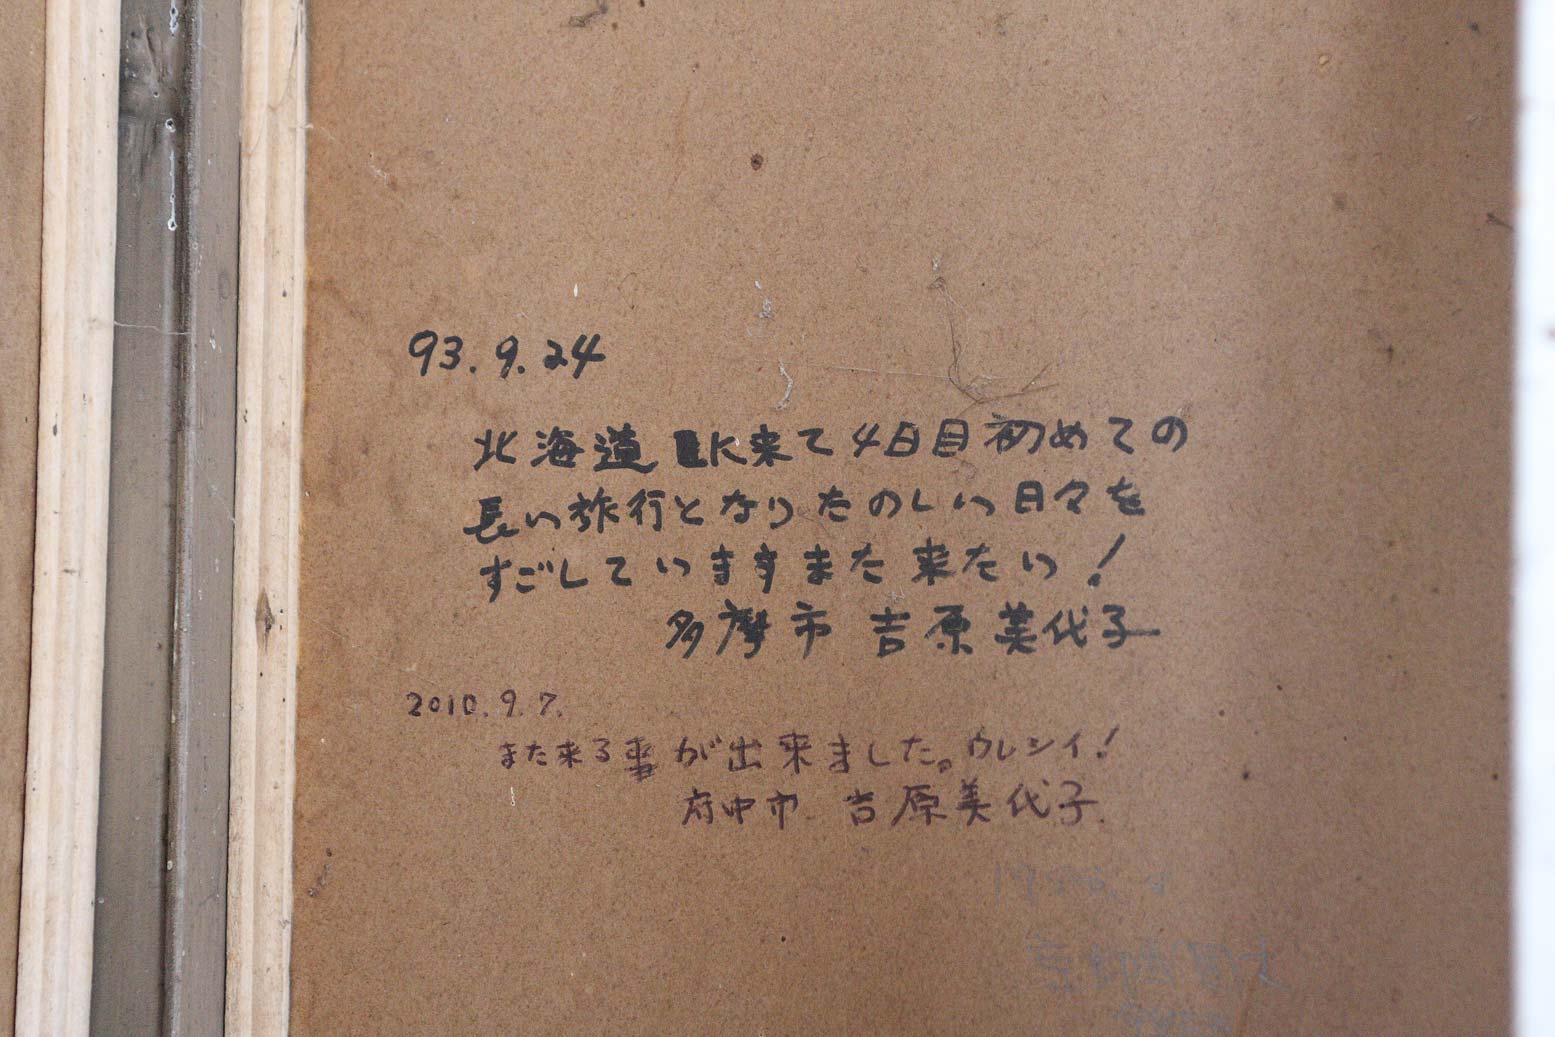 93.9.24
北海道に来て4日目初めての
長い旅行となりたのしい日々を
すごしていますまた来たい!
多摩市 吉原美代子
2010.9.7.
また来る事が出来ました。ウレシイ!
府中市 吉原美代子.